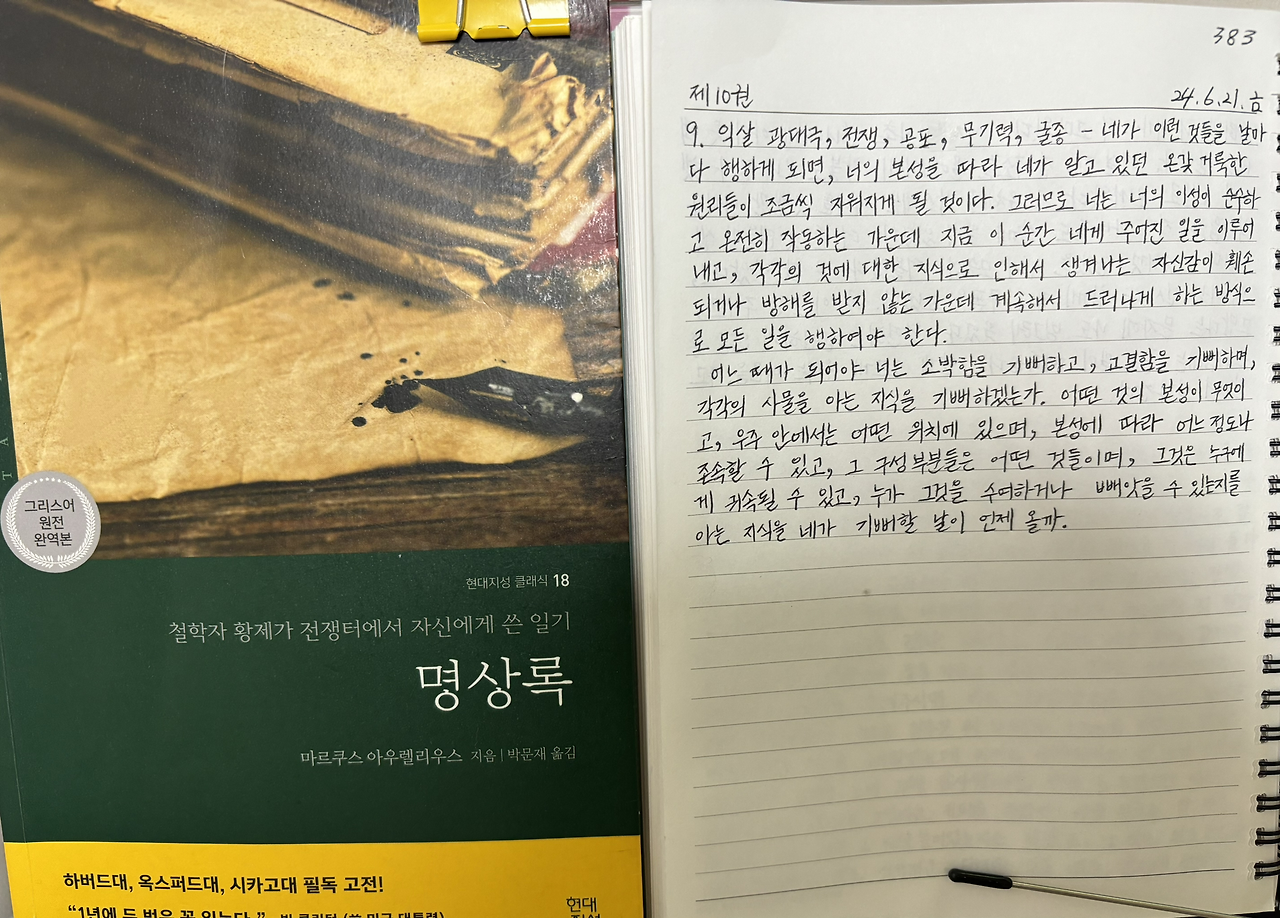 그리스어
원전
완역본
현대지성 클래식 18
철학자 황제가 전쟁터에서 자신에게 쓴 일기
명상록
마르쿠스 아우렐리우스 지음 | 박문재 옮김
하버드대, 옥스퍼드대, 시카고대 필독 고전!
“1년에 두 번은 꼭 읽는다.”
현대
383
제10권 24.6.21.금
9. 익살 광대극, 전쟁, 공포, 무기력, 굴종 - 네가 이런 것들을 날마
다 행하게 되면, 너의 본성을 따라 네가 알고 있던 온갖 거룩한
원리들이 조금씩 지워지게 될 것이다. 그러므로 너는 너의 이성이 순수하
고 온전히 작동하는 가운데 지금 이 순간 네게 주어진 일을 이루어
내고, 각각의 것에 대한 지식으로 인해서 생겨나는 자신감이 훼손
되거나 방해를 받지 않는 가운데 계속해서 드러나게 하는 방식으
로 모든 일을 행하여야 한다.
어느 때가 되어야 너는 소박함을 기뻐하고, 고결함을 기뻐하며,
각각의 사물을 아는 지식을 기뻐하겠는가. 어떤 것의 본성이 무엇이
고, 우주 안에서는 어떤 위치에 있으며, 본성에 따라 어느 정도나
존속할 수 있고, 그 구성부분들은 어떤 것들이며, 그것은 누구에
게 귀속될 수 있고, 누가 그것을 수여하거나 빼앗을 수 있는지를
아는 지식을 네가 기뻐할 날이 언제 올까.